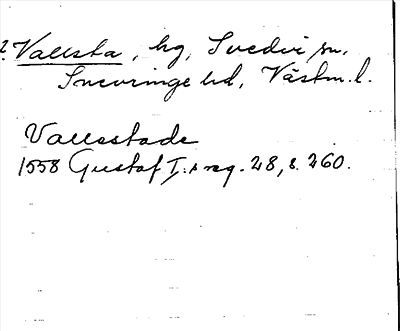 ? Vallsta, hg, Svedvi sn,
Snevringe hd, Västm. l.
Vallsstade
1558 Gustaf I:s reg. 28, s. 260.